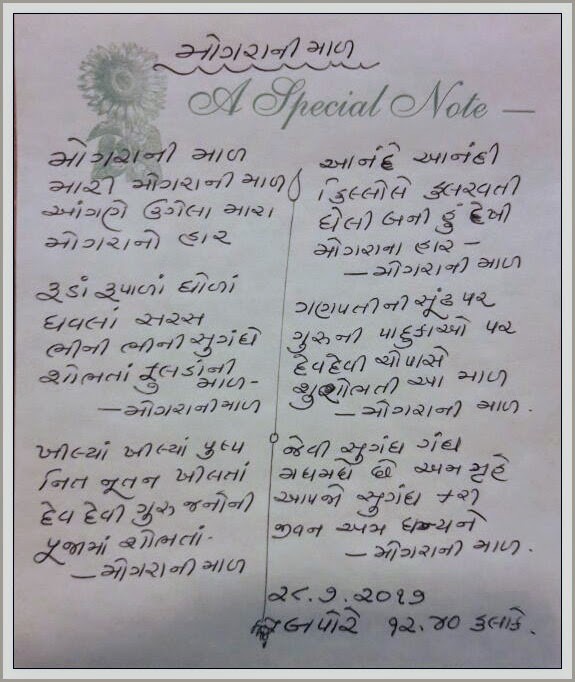 મોગરાની માળ
A Special Note —
મોગરાની માળ
મારી મોગરાની માળ
આંગણે ઉગેલા મારા
મોગરાનો હાર
રૂડાં રૂપાળાં ધોળાં
ધવલાં સરસ
ભીની ભીની સુગંધે
શોભતાં ફુલડાંની
માળ-
— મોગરાની માળ
ખીલ્યાં ખીલ્યાં પુષ્પ
નિત નૂતન ખીલતાં
દેવ દેવી ગુરુ જનોની
પૂજામાં શોભતાં.
— મોગરાની માળ
આનંદે આનંદી
કિલ્લોલે કલરવતી
ઘેલી બની હું દેખી
મોગરાના હાર –
— મોગરાની માળ
ગણપતીની સૂંઢ પર
ગુરુની પાદુકાઓ પર
દેવદેવી ચોપાસે
શુશોભતી આ માળ
— મોગરાની માળ.
જેવી સુગંધ ગંધ
મઘમઘે છે અમ ગૃહે
આપજો સુગંધ
જીવન અમ ધન્યને
— મોગરાની માળ.
૨૮.૭.૨૦૧૭
બપોરે ૧૨.૪૦ કલાકે.